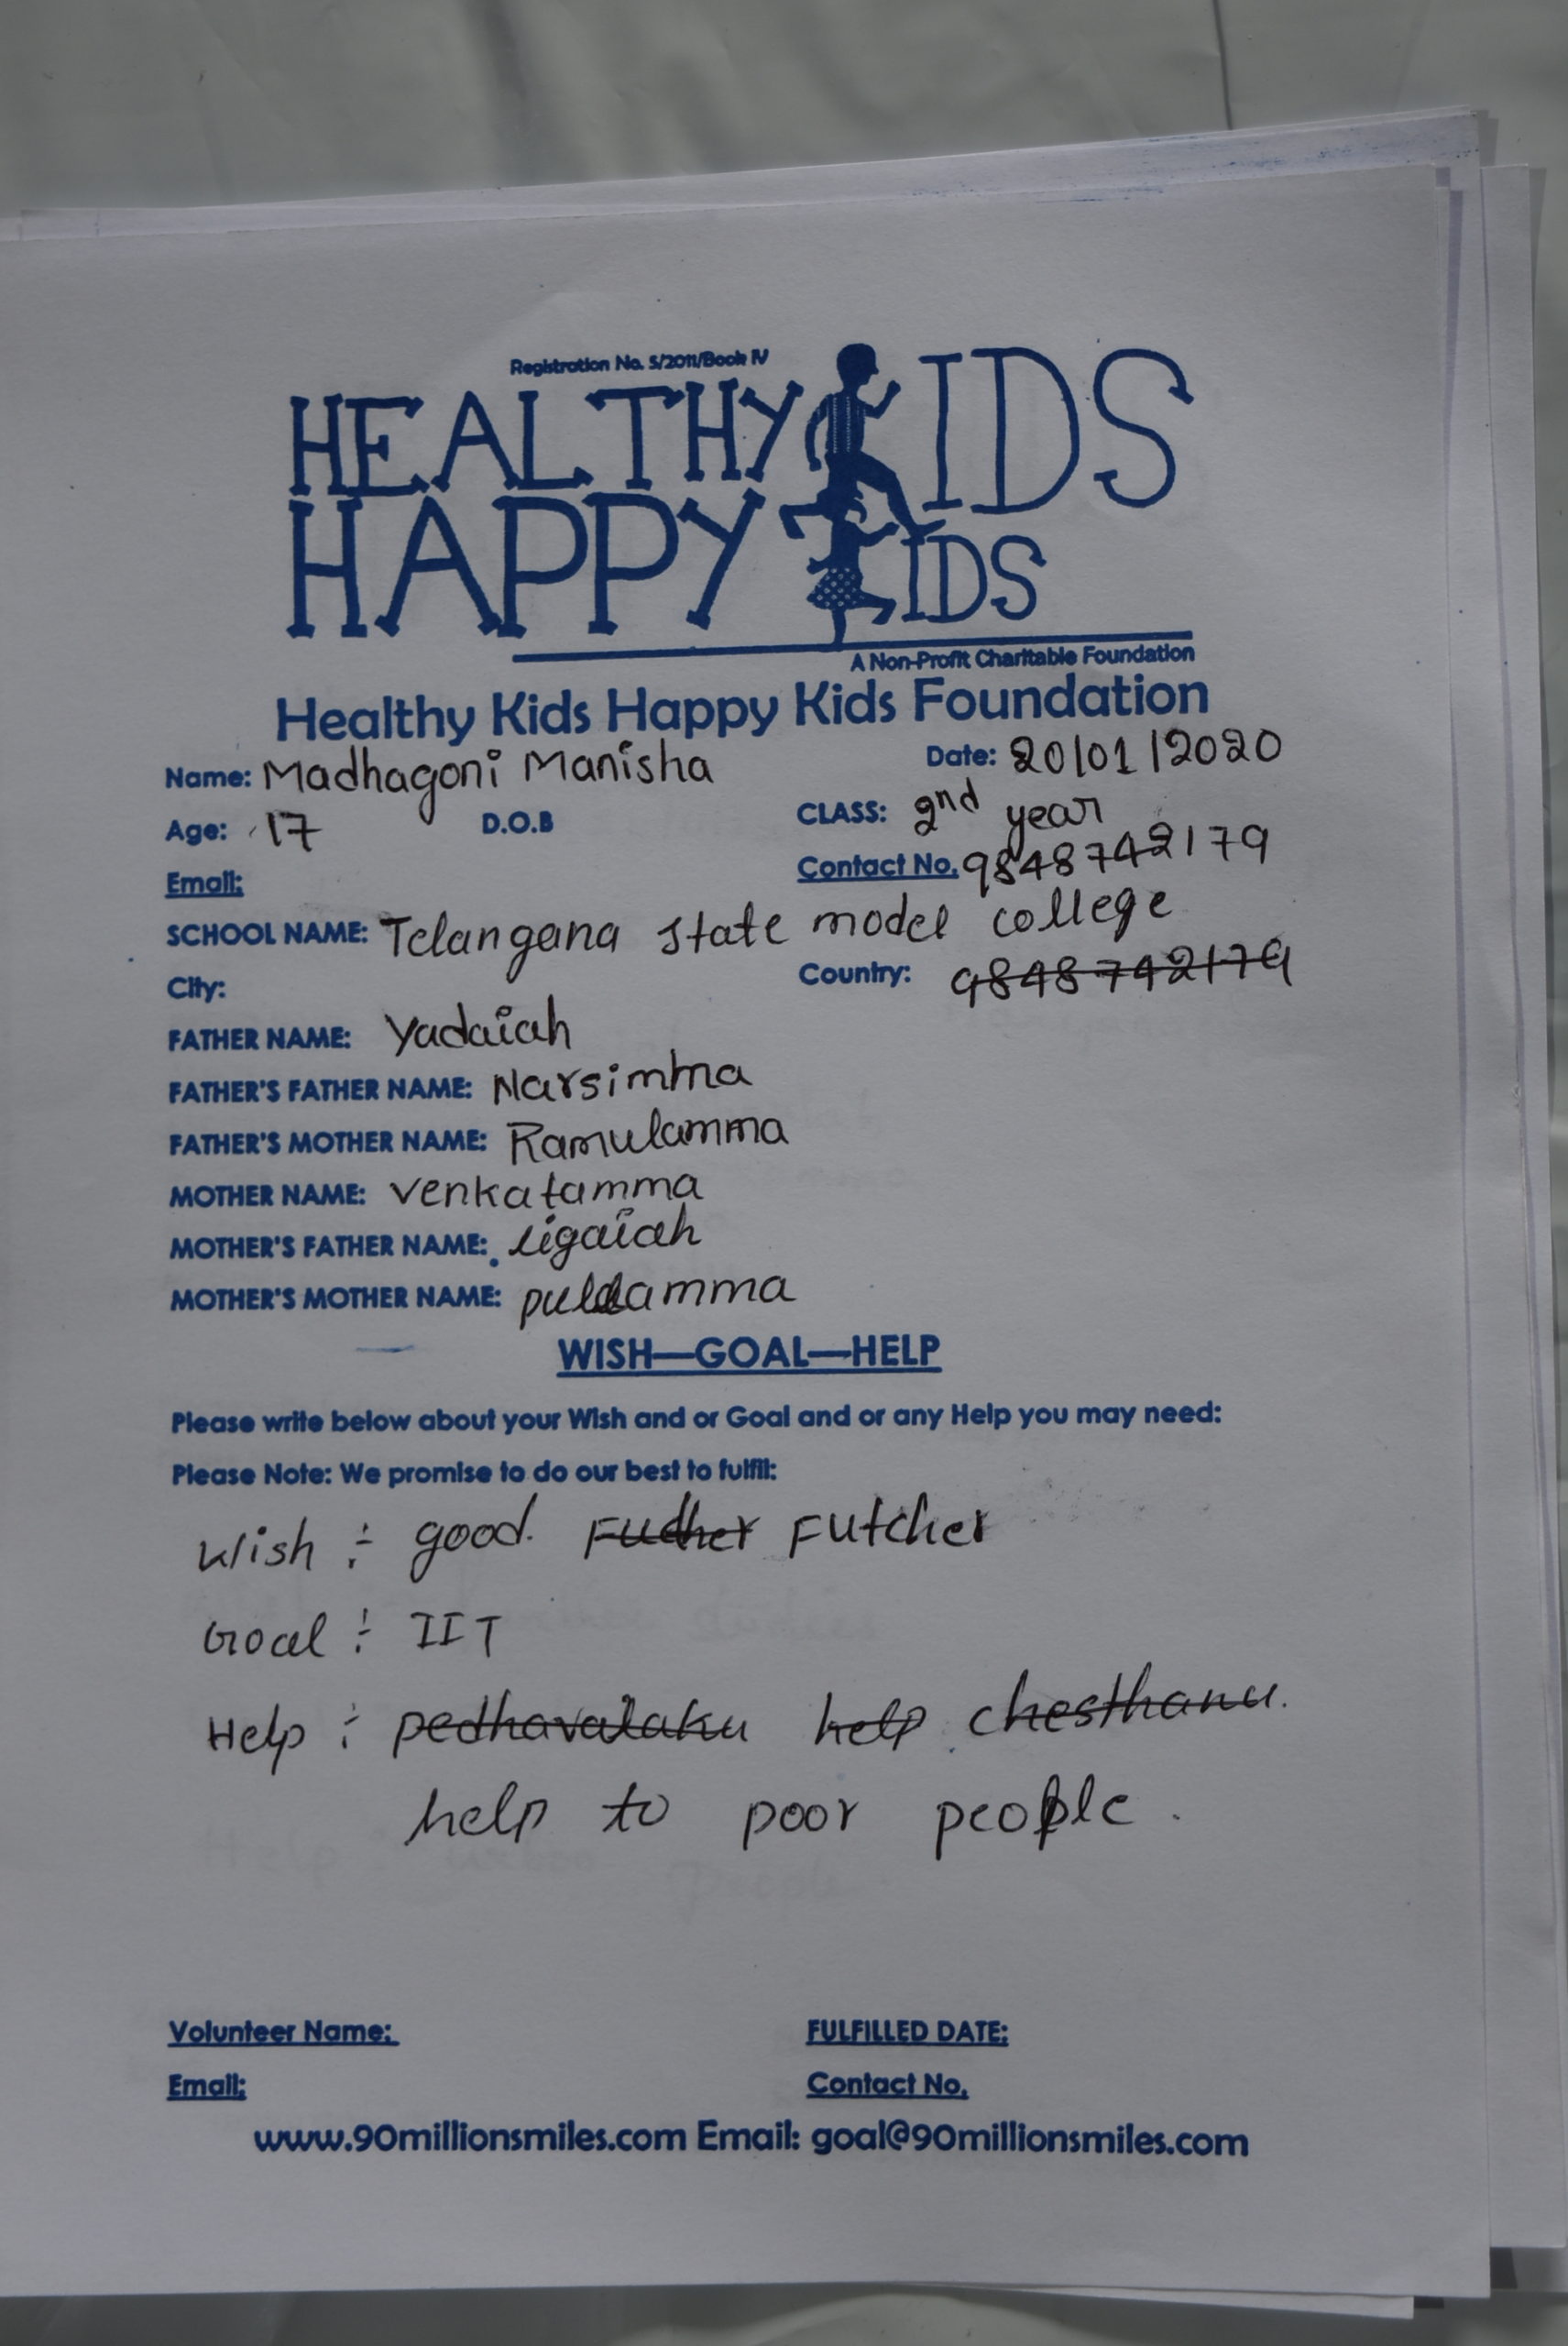 Registration No. S/2011/Book IV
HEALTHY KIDS
HAPPY KIDS
A Non-Profit Charitable Foundation
Healthy Kids Happy Kids Foundation
Name: Madhagoni Manisha Date: 20/01/2020
Age: 17 D.O.B CLASS: 2nd year
Email: Contact No. 9848742179
SCHOOL NAME: Telangana state model college
City: Country: 9848742179
FATHER NAME: Yadaiah
FATHER'S FATHER NAME: Narsimha
FATHER'S MOTHER NAME: Ramulamma
MOTHER NAME: venkatamma
MOTHER'S FATHER NAME: ligaiah
MOTHER'S MOTHER NAME:
WISH—GOAL—HELP
Please write below about your Wish and or Goal and or any Help you may need:
Please Note: We promise to do our best to fulfil:
Wish : good. Fucher Futcher
Goal : IIT
Help : pedhavalaku help chesthanu.
help to poor people.
Volunteer Name: FULFILLED DATE:
Email: Contact No.
www.90millionsmiles.com Email: goal@90millionsmiles.com